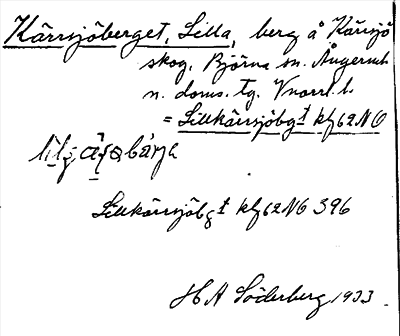 Kärrsjöberget, Lilla, berg å Kärrsjö
skog. Björna sn. Ångerml.
n. doms. tg. Vnorrl. l.
= Lillkärrsjöbgt kbl 62 NO
Lillkärrsjöbgt kbl 62 NO 396
H A Söderberg 1933.